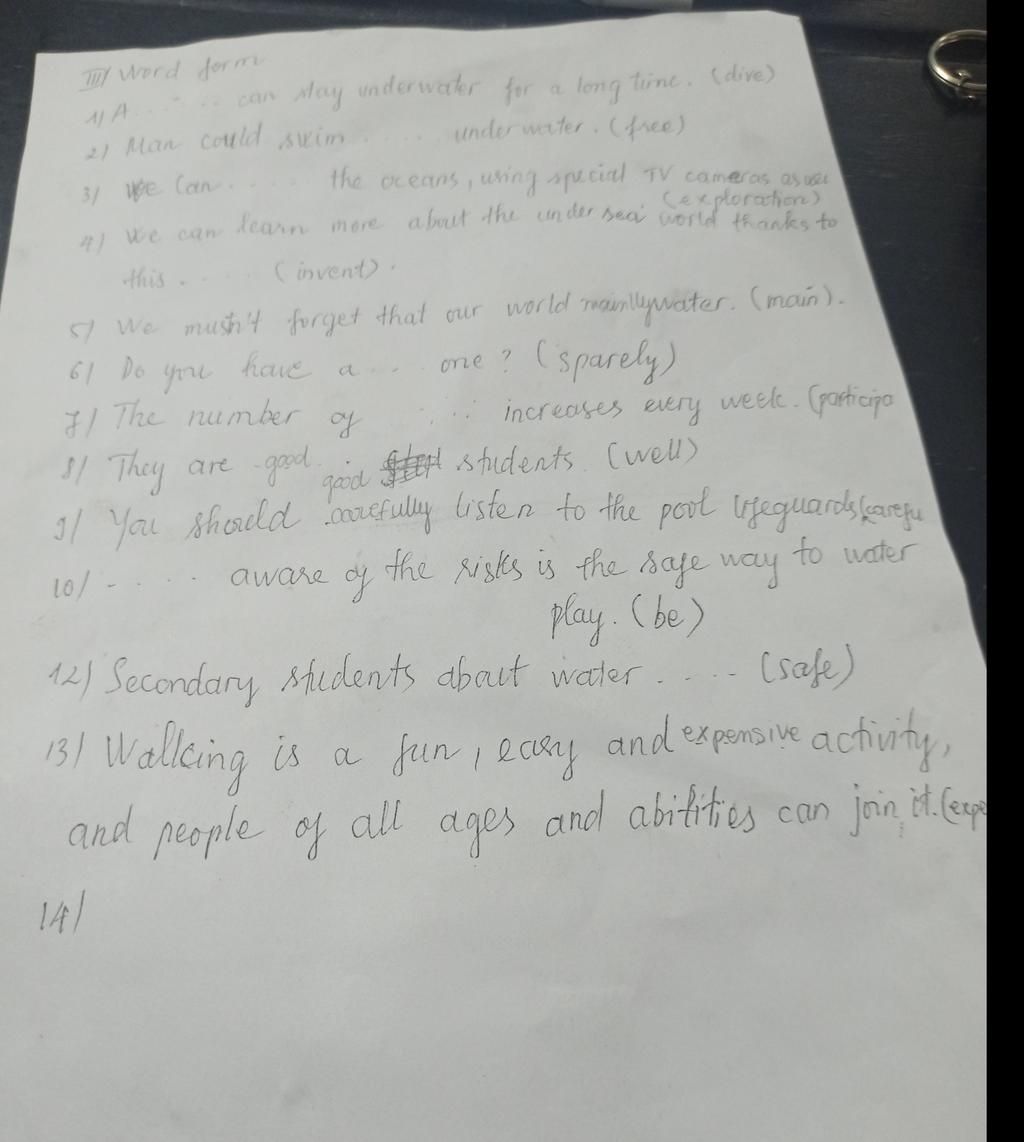 III/ Word form
1/ A ...... can stay underwater for a long time. (dive)
2/ Man could swim ..... underwater. (free)
3/ We Can ..... the oceans, using special TV cameras
(exploration)
4/ We can learn more about the under sea world thanks to
this ..... (invent).
5/ We mustn't forget that our world mainlly water. (main).
6/ Do you have a .... one? (sparely)
7/ The number of ..... increases every week. (participa
8/ They are good .. students. (well)
good
9/ You should ..carefully listen to the pool lifeguards (carefu
10/ ..... aware of the risks is the safe way to water
play. (be)
12/ Secondary students about water ..... (safe)
13/ Walking is a fun, easy and expensive activity,
and people of all ages and abilities can join it. (expe
14/